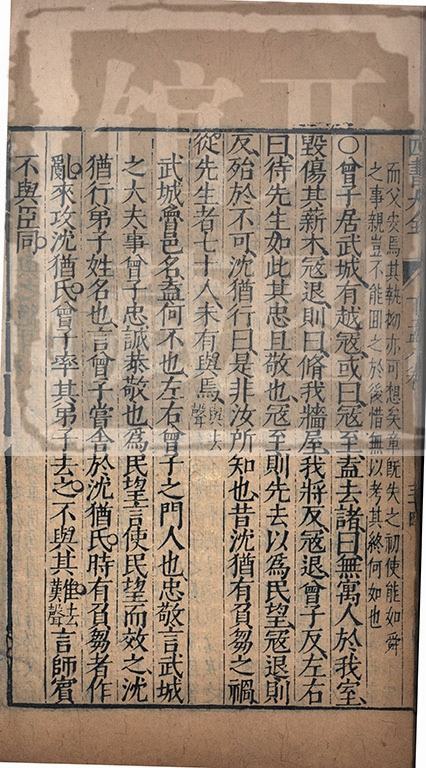 而父安焉其執拗亦可想矣章旣失之初使能如舜
之事親豈不能回之於後惜無以考其終何如也
○曾子居武城有越寇或曰寇至盍去諸曰無寓人於我室
毀傷其薪木寇退則曰脩我牆屋我將反寇退曾子反左右
曰待先生如此其忠且敬也寇至則先去以爲民望寇退則
反殆於不可沈猶行曰是非汝所知也昔沈猶有負芻之禍
從先生者七十人未有與焉與去聲
武城魯邑名盍何不也左右曾子之門人也忠敬言武城
之大夫事曾子忠誠恭敬也爲民望言使民望而效之沈
猶行弟子姓名也言曾子嘗舍於沈猶氏時有負芻者作
亂來攻沈猶氏曾子率其弟子去之不與其難去聲言師賓
不與臣同